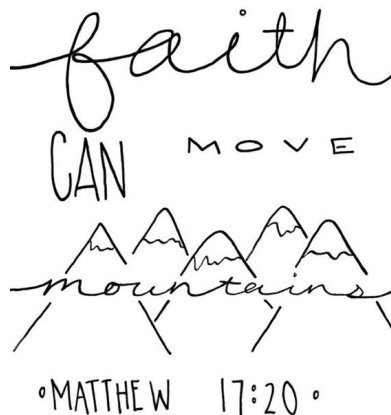 faith
CAN MOVE
mountains
MATTHEW 17:20